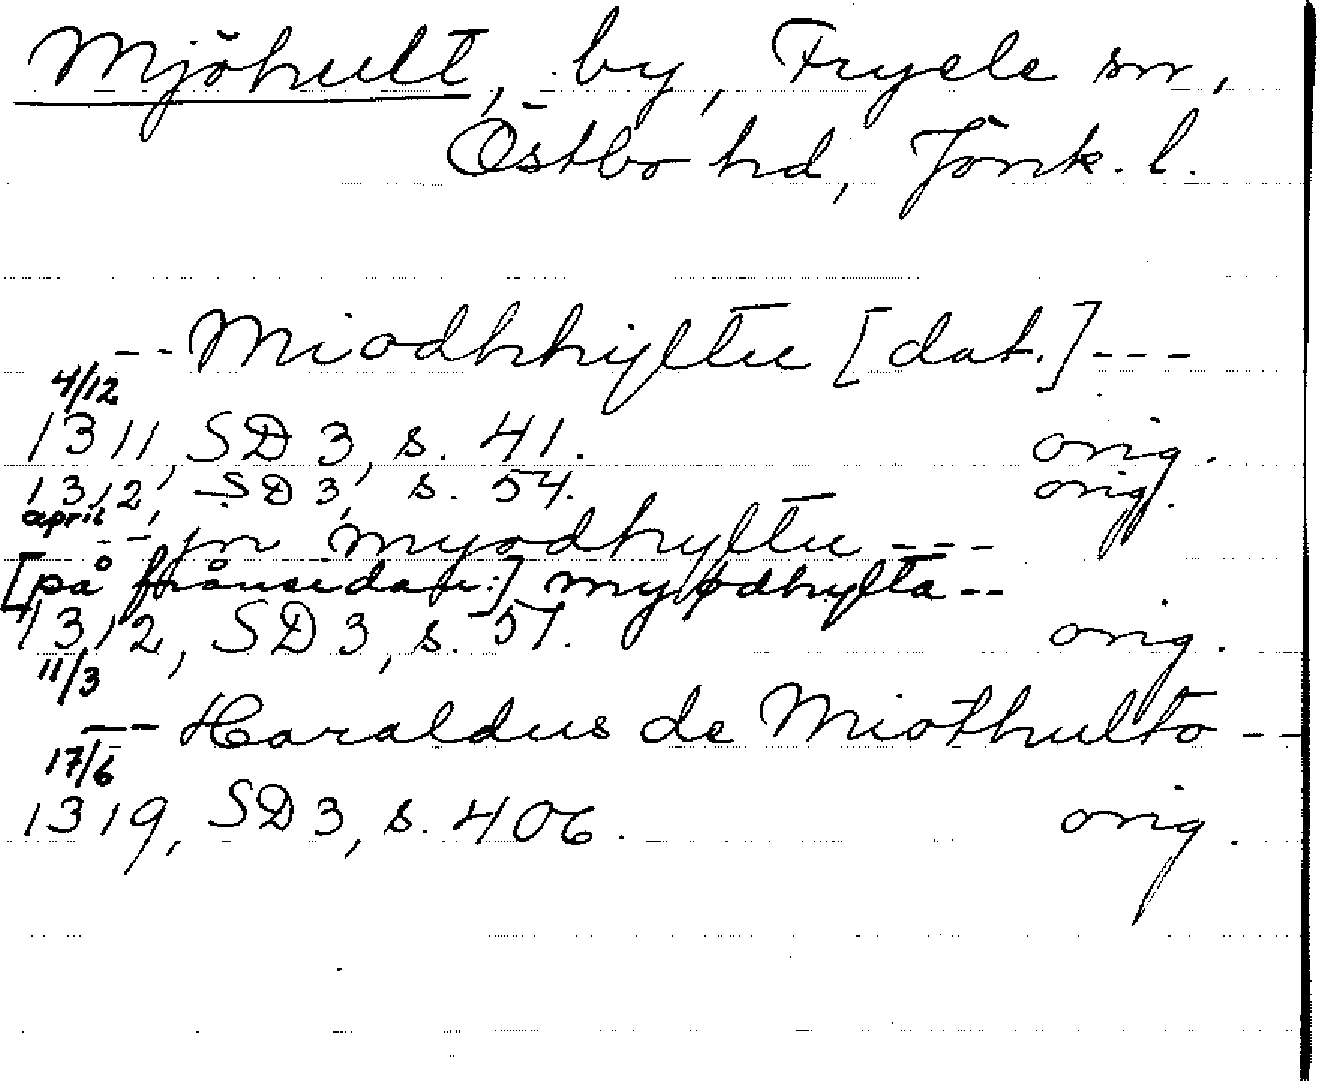 Mjöhult, by, Fryele sn,
Östbo hd, Jönk. l.
-- Miodhhyltu [dat.] ---
4/12
1311, SD 3, s. 41. orig.
1312, SD 3, s. 54. orig.
april -- jn myodhyltu ---
[på frånsidan:] myodhylta --
1312, SD 3, s. 57. orig.
11/3
-- Haraldus de Miothulto --
17/6
1319, SD 3, s. 406. orig.